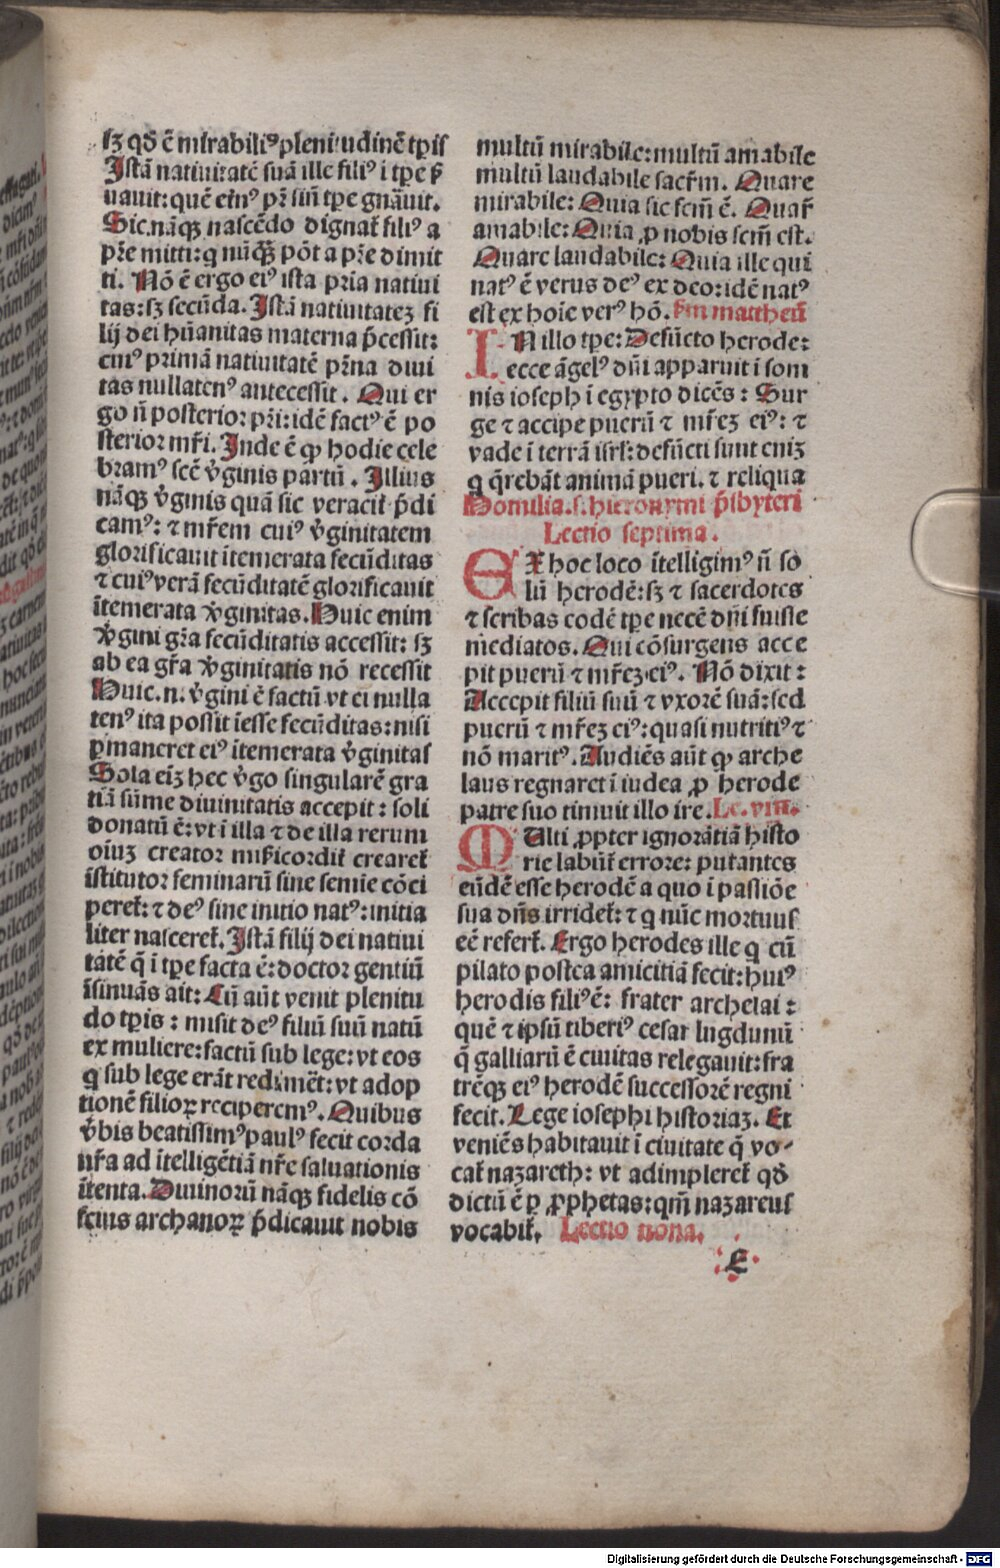 sꝫ qđ ē mirabiliꝰ pleniudinē tp̄is
Istā natiuitatē suā ille filiꝰ ī tp̄e ẜ
uauit: quē etn̄ꝰ pr̄ sin̄ tp̄e gnāuit.
Sic.nāqꝫ nascēdo dignat̄ filiꝰ a
pr̄e mitti: q nūqꝫ pōt a pr̄e dimit
ti. Nō ē ergo eiꝰ ista pr̄ia natiui
tas: sꝫ secūda. Istā natiuitatez fi
lij dei hūanitas materna p̄cessit:
cuiꝰ primā natiuitatē pr̄na diui
tas nullatenꝰ antecessit. Qui er
go n̄ posterior pr̄i: idē factꝰ ē po
sterior mr̄i. Inde ē ꝙ hodie cele
bramꝰ scē v̄ginis partū. Illius
nāqꝫ v̄ginis quā sic veracit̄ p̄di
camꝰ: ⁊ mr̄em cuiꝰ v̄ginitatem
glorificauit ītemerata fecūditas
⁊ cuiꝰ verā fecūditatē glorificauit
ītemerata v̄ginitas. Huic enim
v̄gini gr̄a fecūditatis accessit: sꝫ
ab ea gr̄a v̄ginitatis nō recessit
Huic.n. v̄gini ē factū vt ei nulla
tenꝰ ita possit īesse fecūditas: nisi
ꝑmaneret eiꝰ ītemerata v̄ginitas
Sola eīꝫ hec v̄go singularē gra
tiā sūme diuinitatis accepit: soli
donatū ē: vt ī illa ⁊ de illa rerum
oīuꝫ creator misicordit̄ crearet̄
īstitutor feminarū sine semīe cōci
peret̄: ⁊ deꝰ sine initio natꝰ: initia
liter nasceret̄. Istā filij dei natiui
tatē q̄ ī tp̄e facta ē: doctor gentiū
īsinuās ait: Cū aūt venit plenitu
do tp̄is: misit deꝰ filiū suū natū
ex muliere: factū sub lege: vt eos
q sub lege erāt redimēt: vt adop
tionē filioꝝ reciperemꝰ. Quibus
v̄bis beatissimꝰ paulꝰ fecit corda
nr̄a ad ītelligētiā nr̄e saluationis
ītenta. Diuinorū nāqꝫ fidelis cō
scius archanoꝝ p̄dicauit nobis
multū mirabile: multū amabile
multū laudabile sacr̄m. Quare
mirabile: Quia sic scm̄ ē. Quar̄
amabile: Quia ꝓ nobis scm̄ est.
Quare laudabile: Quia ille qui
natꝰ ē verus deꝰ ex deo: idē natꝰ
est ex hoīe verꝰ hō. ẜm mattheū
IN illo tp̄e: Defūcto herode:
ecce āgelꝰ dn̄i apparuit ī som
nis ioseph ī egypto dicēs: Sur
ge ⁊ accipe puerū ⁊ mr̄eꝫ eiꝰ: ⁊
vade ī terrā isr̄l: defūcti sunt eniꝫ
q q̄rebāt animā pueri. ⁊ reliqua
Homilia.s.hieronymi p̄sbyteri
Lectio septima.
EX hoc loco ītelligimꝰ n̄ so
lū herodē: sꝫ ⁊ sacerdotes
⁊ scribas eodē tp̄e necē dn̄i fuisse
meditatos. Qui cōsurgens acce
pit puerū ⁊ mr̄eꝫ eiꝰ. Nō dixit:
Accepit filiū suū ⁊ vxorē suā: sed
puerū ⁊ mr̄eꝫ eiꝰ: quasi nutritiꝰ ⁊
nō maritꝰ. Audiēs aūt ꝙ arche
laus regnaret ī iudea ꝓ herode
patre suo timuit illo ire. Le. viii.
MUlti ꝓpter ignorātiā histo
rie labūt̄ errore: putantes
eūdē esse herodē a quo ī passiōe
sua dn̄s irridet̄: ⁊ q nūc mortuus
eē refert̄. Ergo herodes ille q cū
pilato postea amicitiā fecit: huiꝰ
herodis filiꝰ ē: frater archelai:
quē ⁊ ipsū tiberiꝰ cesar lugdunū
q̄ galliarū ē ciuitas relegauit: fra
trēqꝫ eiꝰ herodē successorē regni
fecit. Lege iosephi historiaꝫ. Et
veniēs habitauit ī ciuitate q̄ vo-
cat̄ nazareth: vt adimpleret̄ qđ
dictū ē ꝑ ꝓphetas: qm̄ nazareus
vocabit̄. Lectio nona.
E
Digitalisierung gefördert durch die Deutsche Forschungsgemeinschaft - DFG